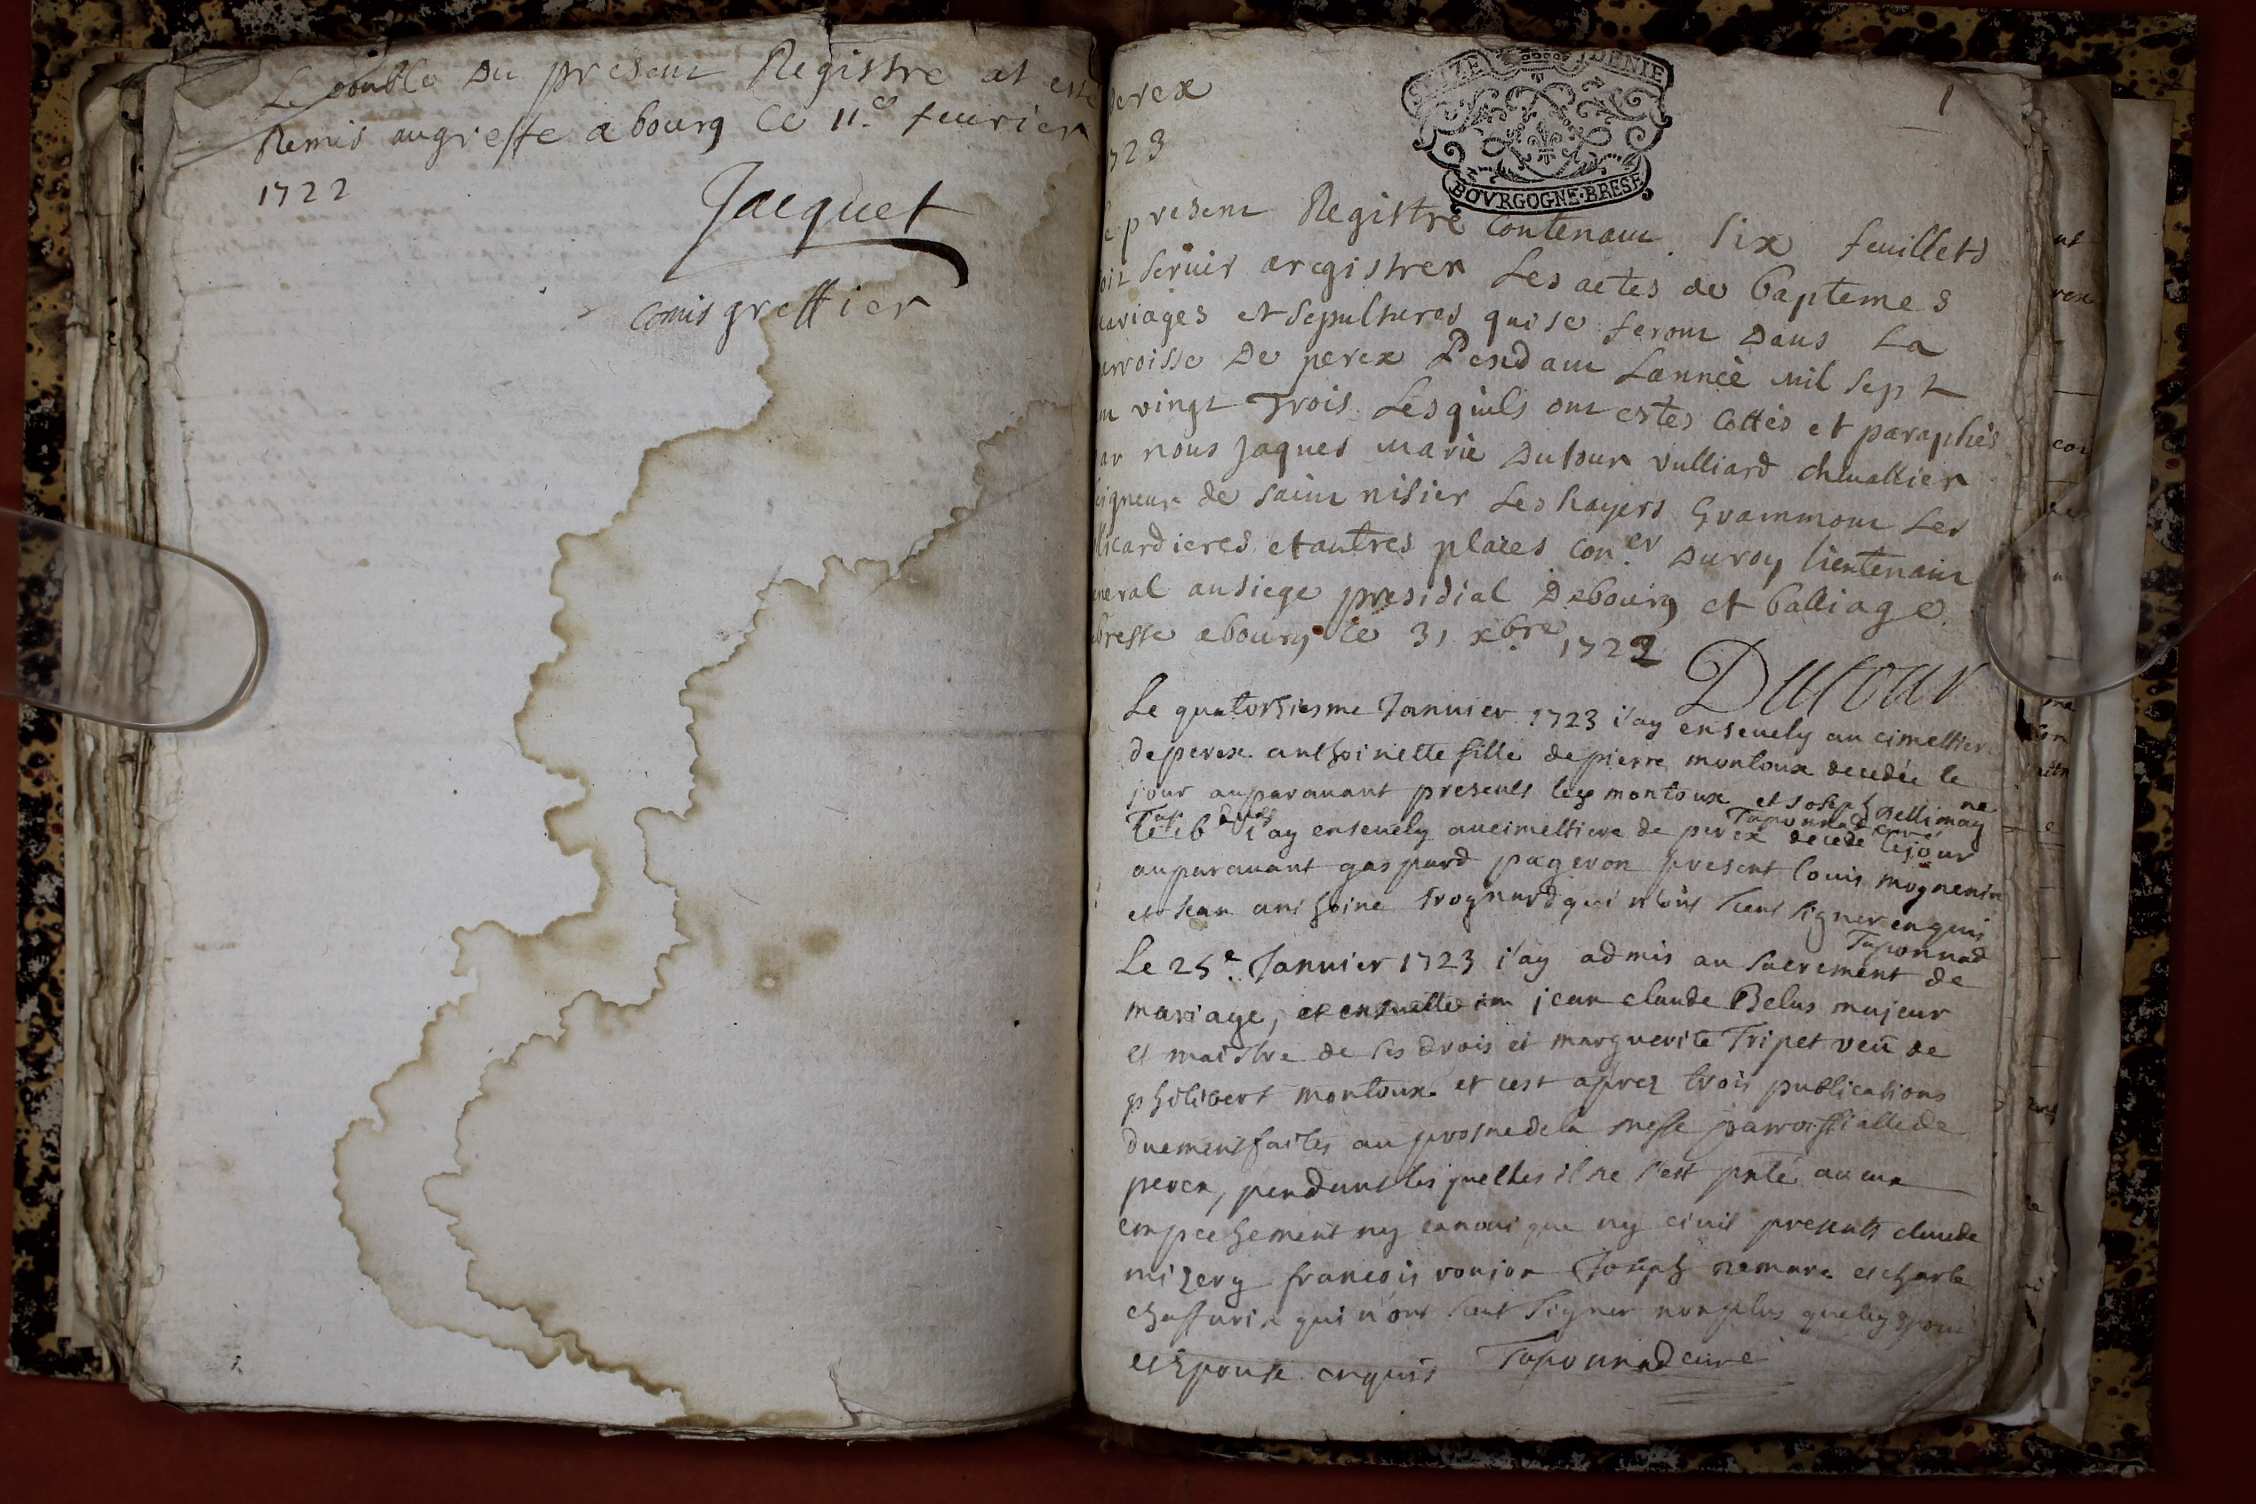 Le double Du present Registre at este
Remis augreffe a bourg Ce 11e feuvrier
1722
Jacquet
Comis greffier
perex
1723
1
BOVRGOGNE·BRESE
Le present Registre Contenant six feuillets
doit servir aregistrer Les actes de baptemes
mariages et sepultures quise feront Dans La
parroisse De perex Pendant Lanneé mil sept
cent vingt Trois Lesquels ont estes Cottés et paraphés
par nous Jaques Marie Dufour Vulliard chevallier
seigneur de saint nisier Les hayers Grammont Les
et autres places Coner Duroy lieutenant
general ausiege presidial Debourg et balliage
bresse abourg Ce 31 xbre 1722
Dufour
Le quatorsiesme Januier 1723 i'ay enseuely au cimettier
de perex anthoinette fille de pierre montoux decedée le
jour auparauant presents montoux et Joseph
Taponnad curé
Le 16 i'ay enseuely aucimettiere de perex decedé le jour
auparauant gaspard pageron present louis mognenin
et Jean anthoine qui n'ont sceut signer enquis
Taponnad
Le 25e Januier 1723 i'ay admis au sacrement de
mariage, jean claude Belus majeur
et maistre de ses drois et marguerite Tripet veu de
philibert montoux et cest aprez trois publications
duement faites au prosne de la messe parroissialle de
perex, pendant lesquelles il ne s'est pnte aucun
empechement ny canonique ny ciuil presents claude
mizery francois vonjon Joseph et charle
qui n'ont sceut signer non plus que
et Epouse enquis Taponnad curé